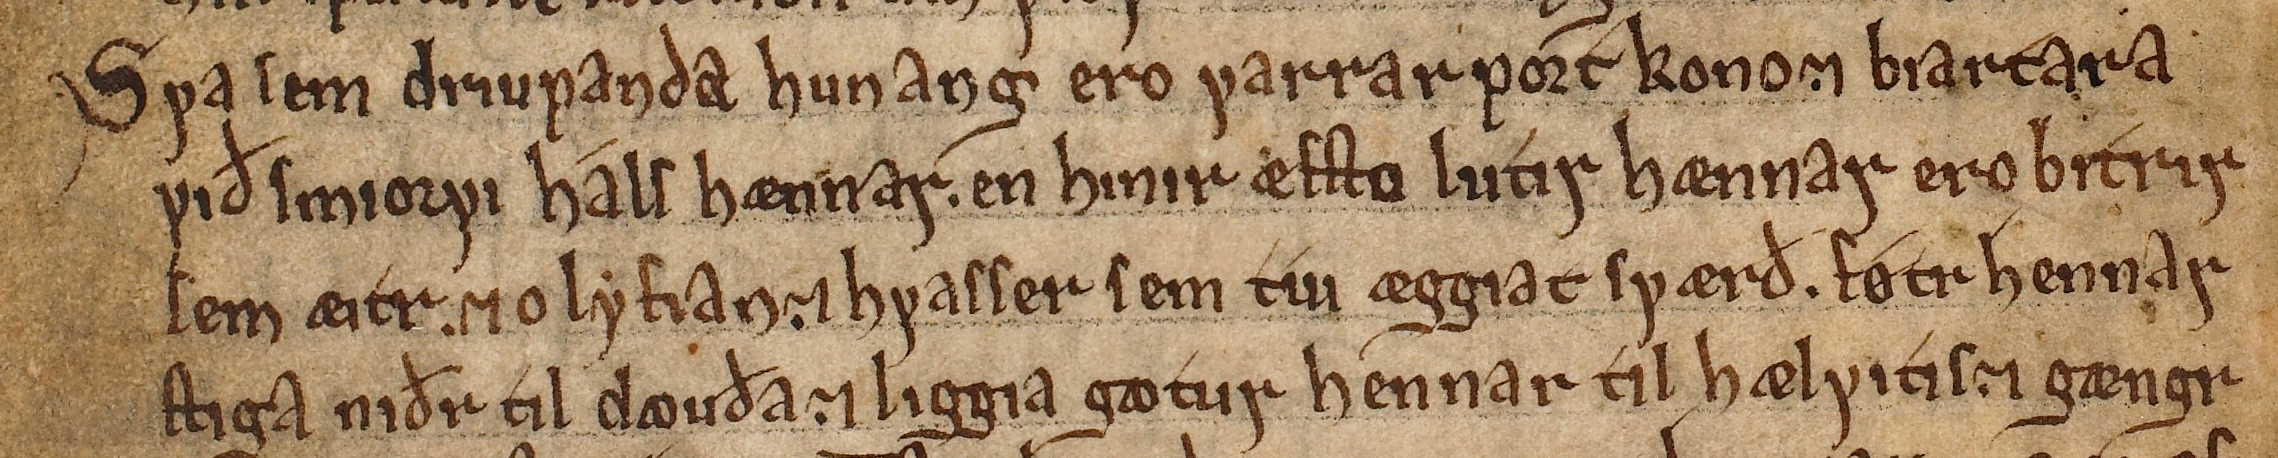 Sƿa sem driupanda hunang ero ƿarrar port kono ⁊ biartara
ƿið smiorƿi hals hænnar. en hinir æfsto lutir hænnar ero bitrir
sem æitr. ⁊ olyfian. ⁊ hƿasser sem tiu æggiat sƿærð. føtr hennar
stiga niðr til dauða. ⁊ liggia gotur hennar til hælƿitis. ⁊ gængr